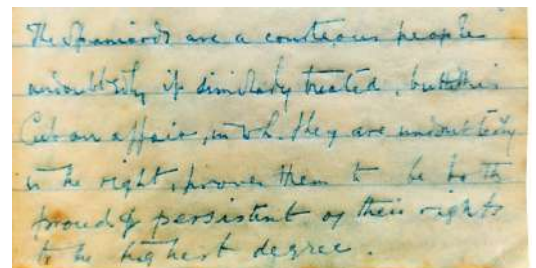 The Spaniards are a courteous people
undoubtedly if similarly treated, but this
Cuban affair, in wh. they are undoubtedly
in the right, proves them to be both
proud & persistent of their rights
to the highest degree.